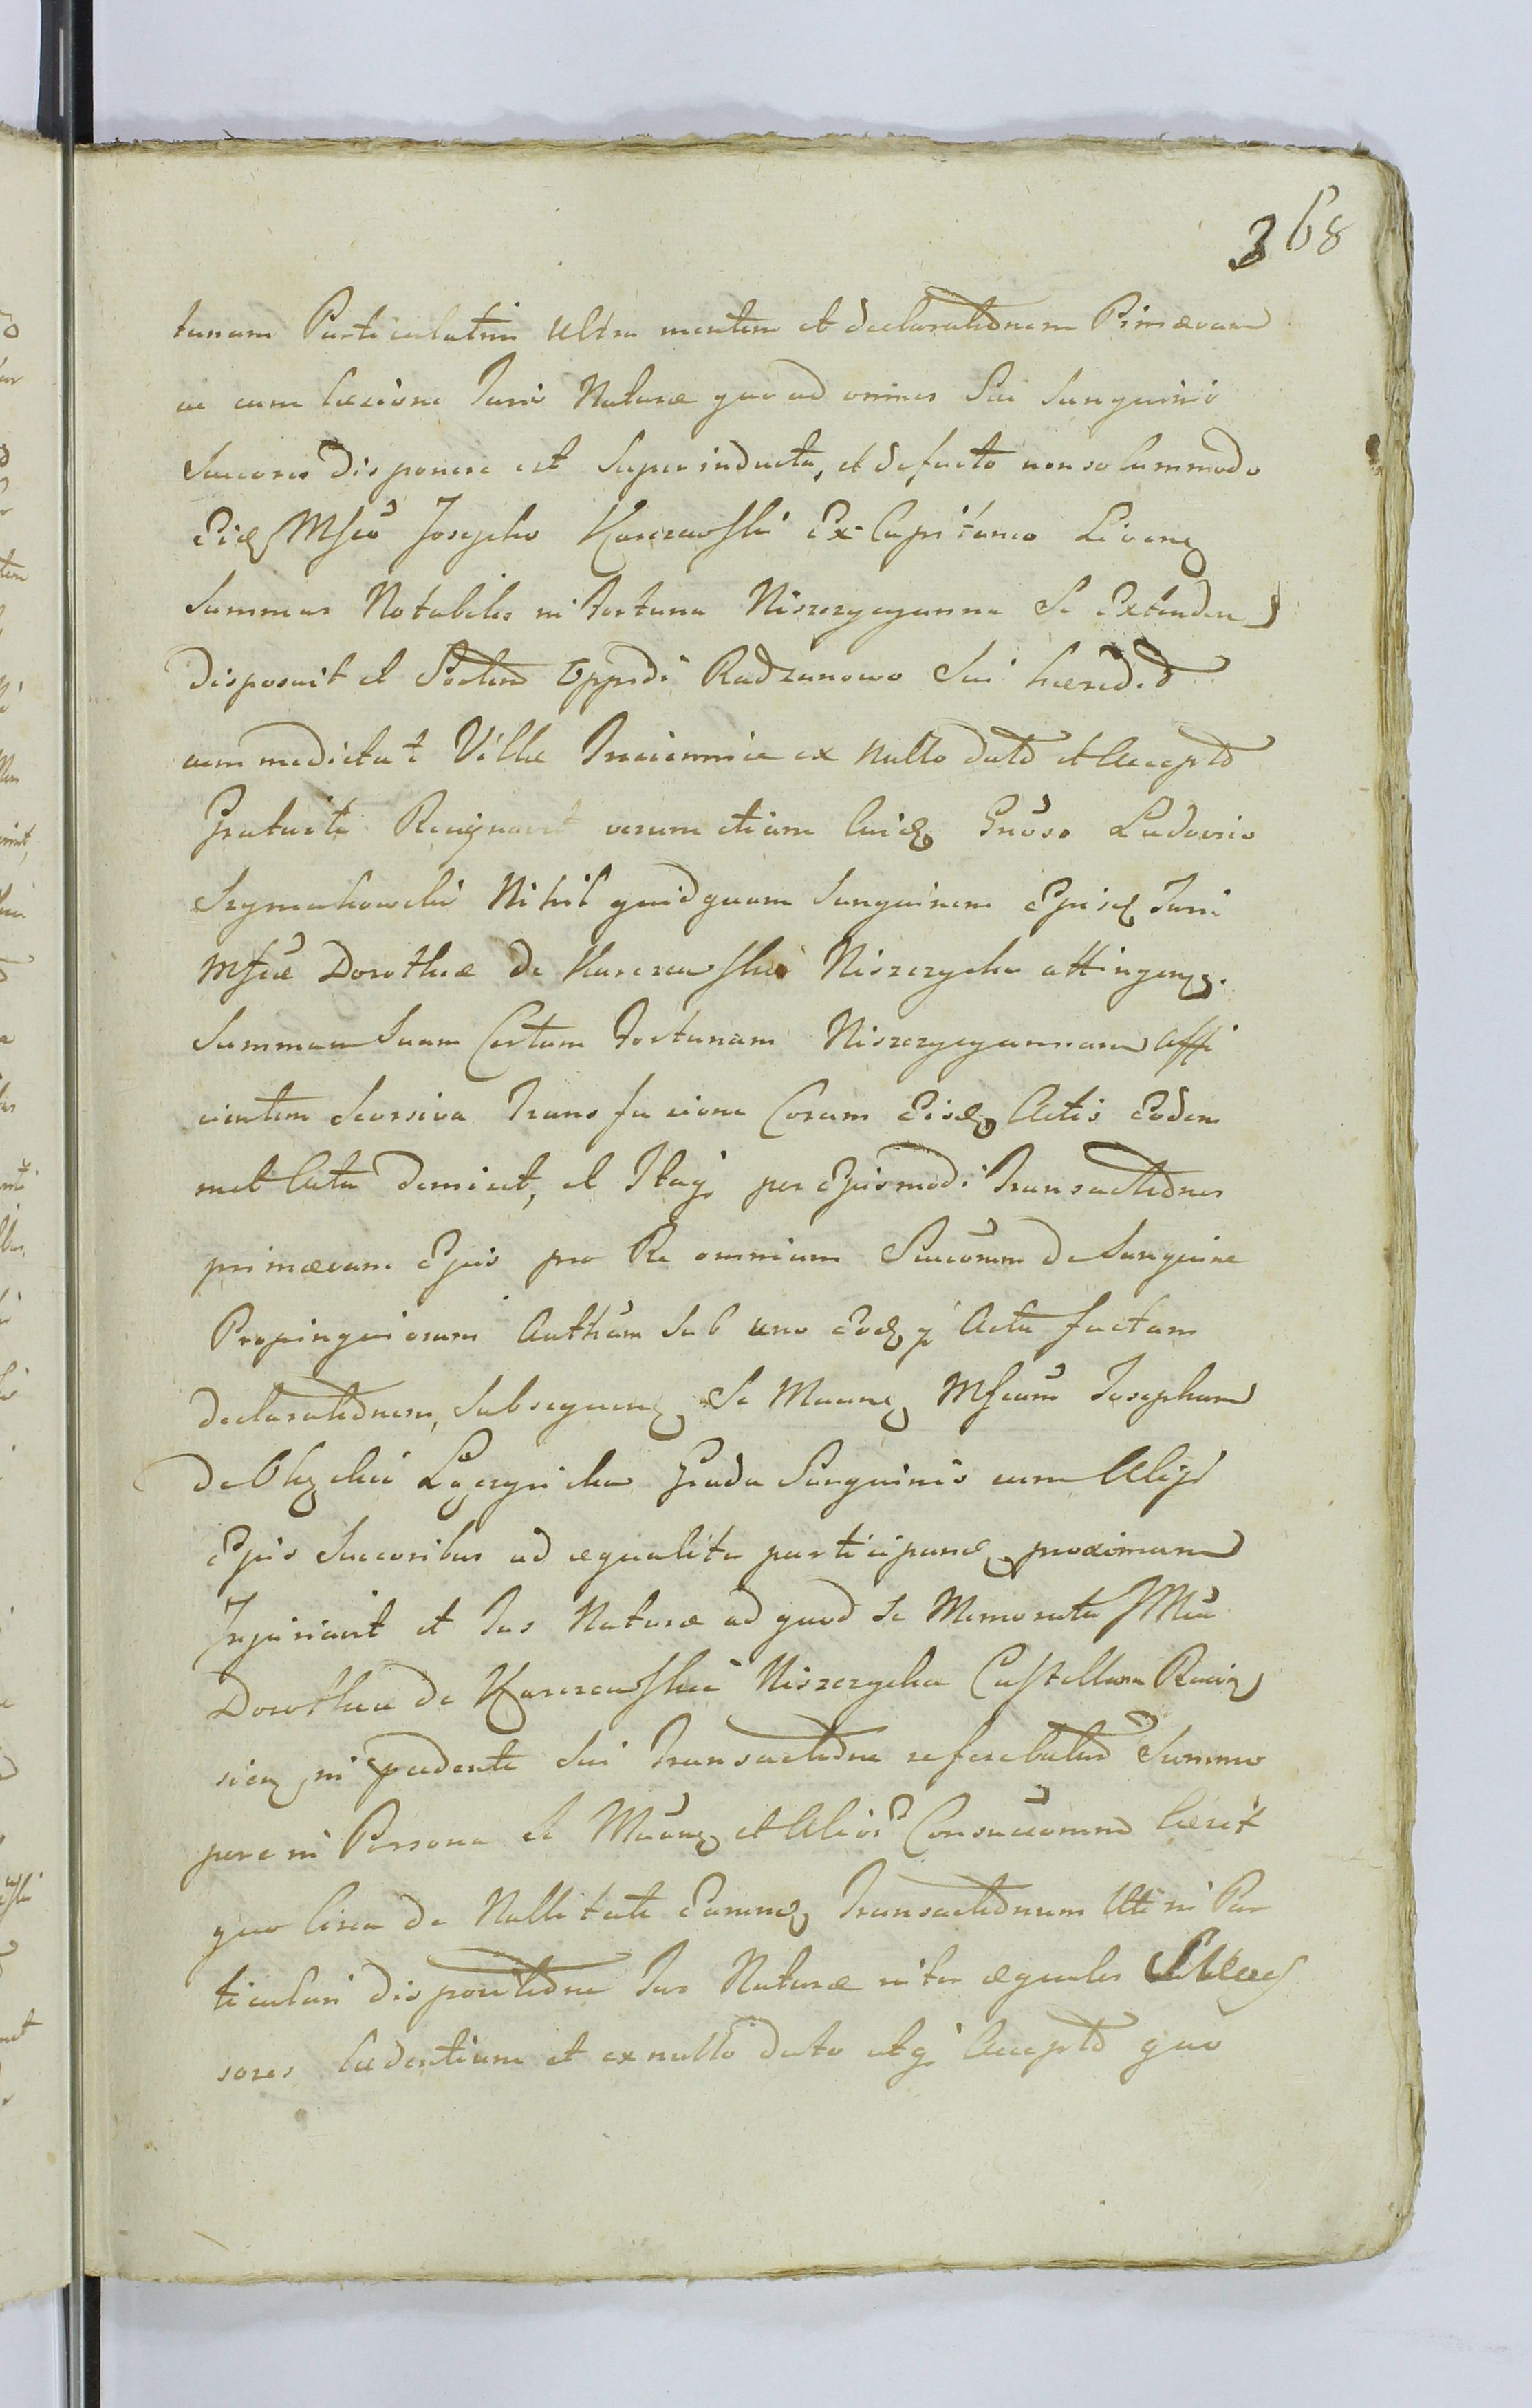 368
tunam Particulatim ultra mentem et declarationem Primævam
ac cum læsione Juris Naturæ quo ad omnes Sui Sanguinis
Succores disponere est Superinducta, et defacto non solummodo
Eidq Mfco Josepho Karczewski Ex-Capitaneo Livenq
Summas Notabiles in Fortuna Niszczycyanna Se Extenden
disposuit et Sortem Oppidi Radzanowo Sui hæredit
cum medietat Villæ ex nullo dato et Accepto
Gratuite Resignavit verum etiam Cuidq Gnoso Ludovico
Szymakowski Nihil quidquam Sanguinem Ejusq Juri
Mfcæ Dorotheæ de Karczewskie Niszczycka attingenq.
Summam Suam Certam Fortunam Niszczycyannam Affi
cientem Seorsiva Transfusione Coram Eisdq Actis Eodem
met Actu demisit, et Itaq per Ejusmodi Transactiones
primævam Ejus pro Re omnium Succorum de Sanguine
Propinquiorum Authum Sub uno Eodq q Actu factam
declarationem, Subsequenq Se Mag Mfcum Josephum
de Łączynska Gradu Sanguinis cum Alijs
Ejus Succoribus ad æqualita participanq proximum
Injuriavit et Jus Naturæ ad quod Se Memorata JMca
Dorothea de Karczewskie Niszczycka Castellana Raciq
sienq in pcedente Sui Transactione referebatur Summo
pere in Persona et et Alior Consuccorum læsit
quo Circa de Nullitate Earumq Transactionum Uti in Par
ticulari dispositione Jus Naturæ inter æquales Succes
sores lædentium et ex nullo dato atq Accepto quo